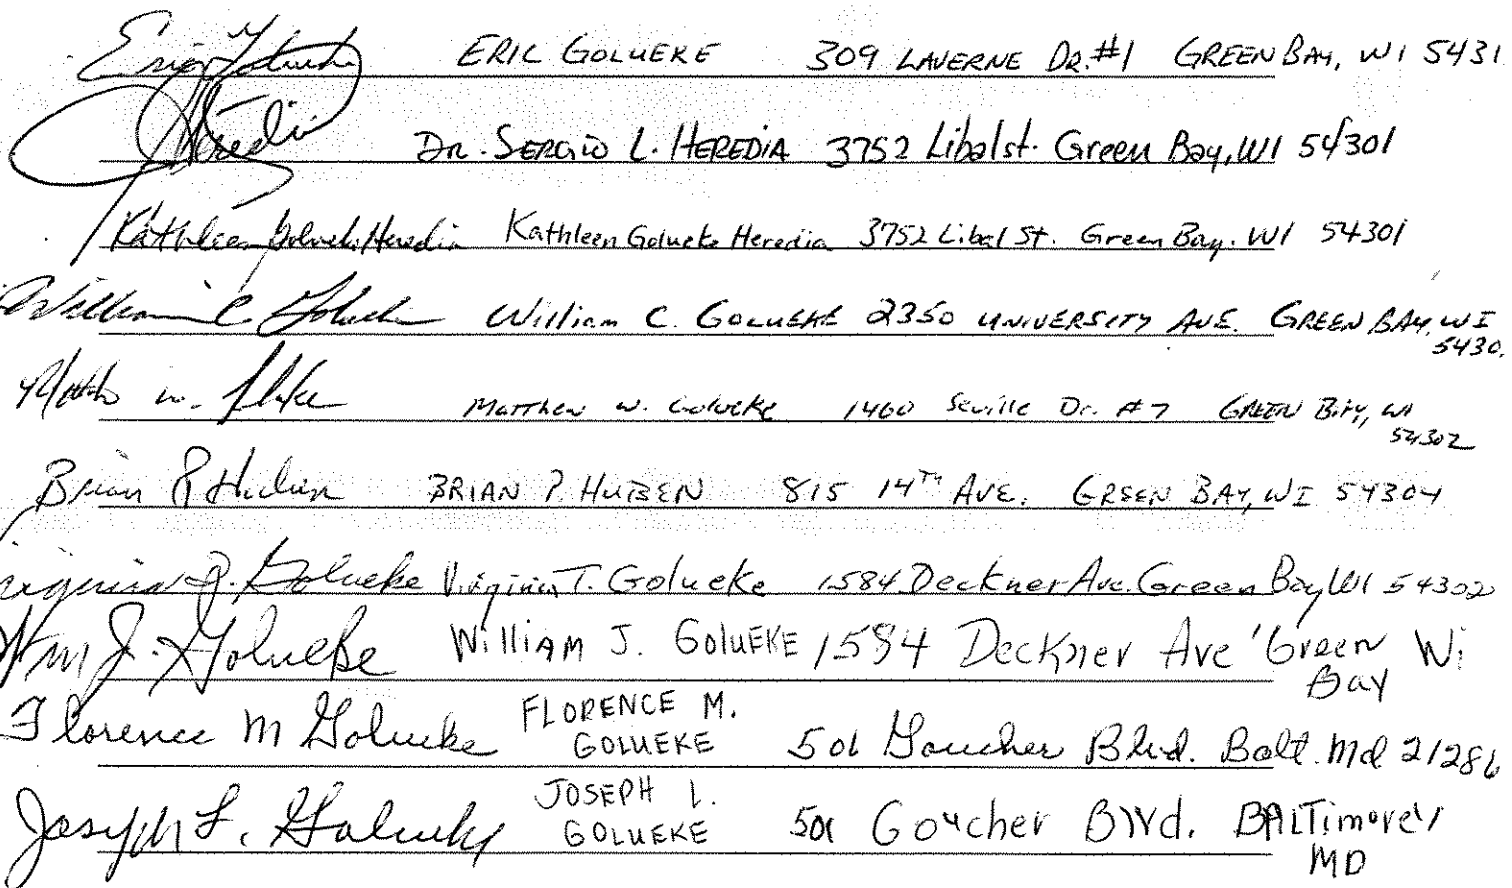 Eric Golueke ERIC GOLUEKE 309 LAVERNE DR. #1 GREEN BAY, WI 5431
Heredia DR. SERGIO L. HEREDIA 3752 Libal st. Green Bay, WI 54301
Kathleen Golueke Heredia Kathleen Golueke Heredia 3752 Libal St. Green Bay. WI 54301
William C. Golueke William C. GOLUEKE 2350 UNIVERSITY AVE. GREEN BAY, WI
5430
Matthew W. Golueke 1460 Seville Dr. #7 GREEN BAY, WI
54302
Brian P Huben BRIAN P HUBEN 815 14TH AVE. GREEN BAY, WI 54304
Virginia T. Golueke Virginia T. Golueke 1584 Deckner Ave. Green Bay WI 54302
Wm J. Golueke William J. GOLUEKE 1584 Deckner Ave Green Wi
Bay
Florence M Golueke FLORENCE M.
GOLUEKE 501 Goucher Blvd. Balt. Md 21286
Joseph L. Golueke JOSEPH L.
GOLUEKE 501 Goucher Blvd. BALTimore,
MD